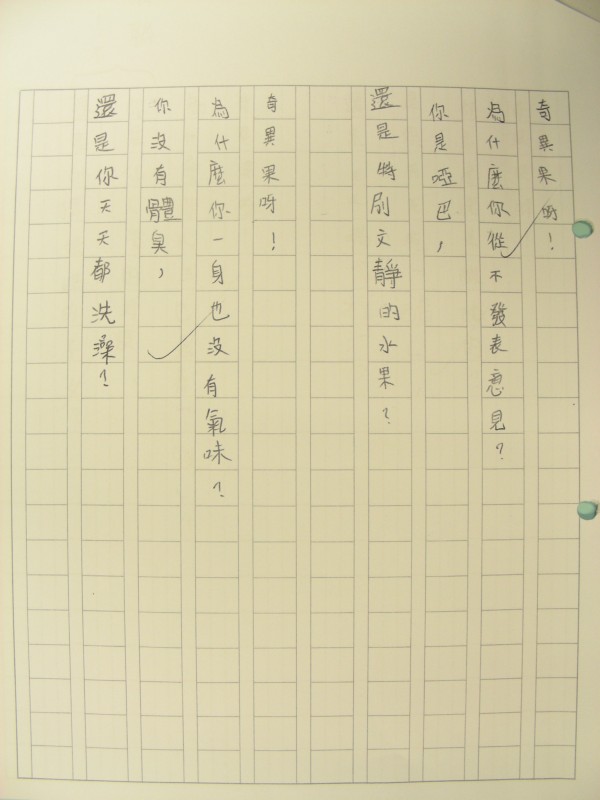 奇異果呀！
為什麼你從不發表意見？
你是啞巴，
還是特別文靜的水果？
奇異果呀！
為什麼你一身也沒有氣味？
你沒有體臭，
還是你天天都洗澡？